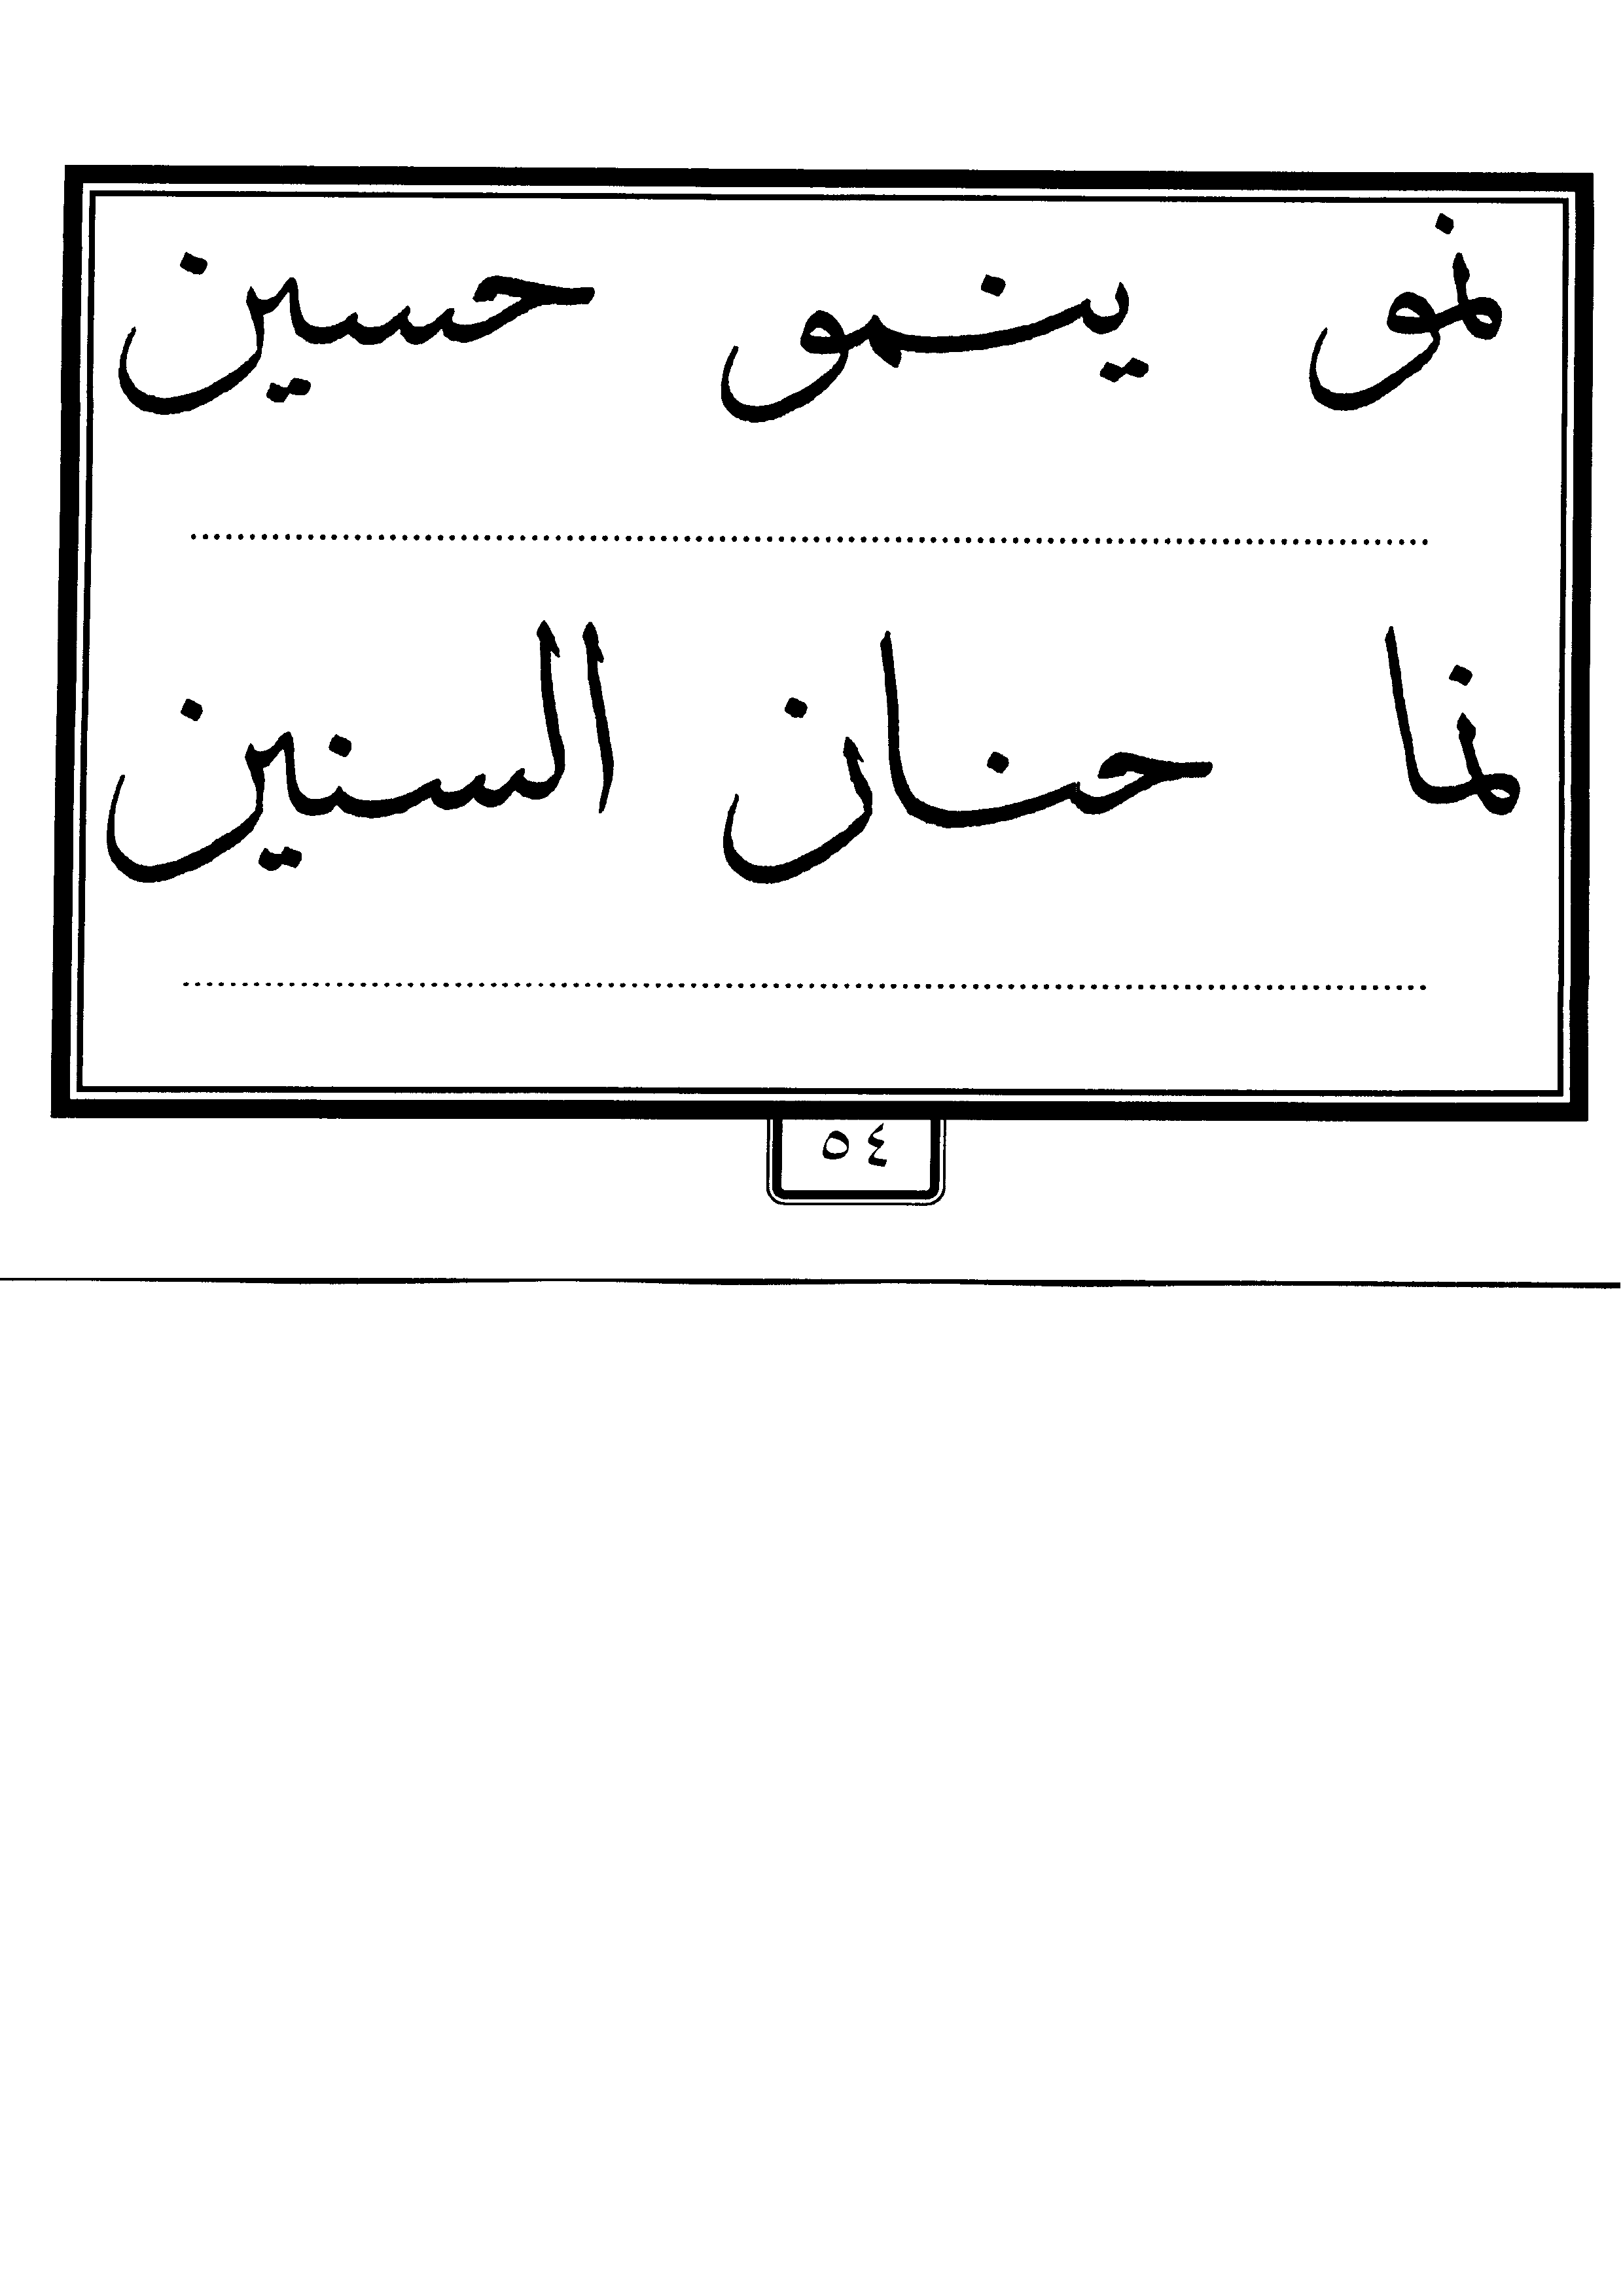 نمو ينمو حسين
نما حنان السنين
٥٤